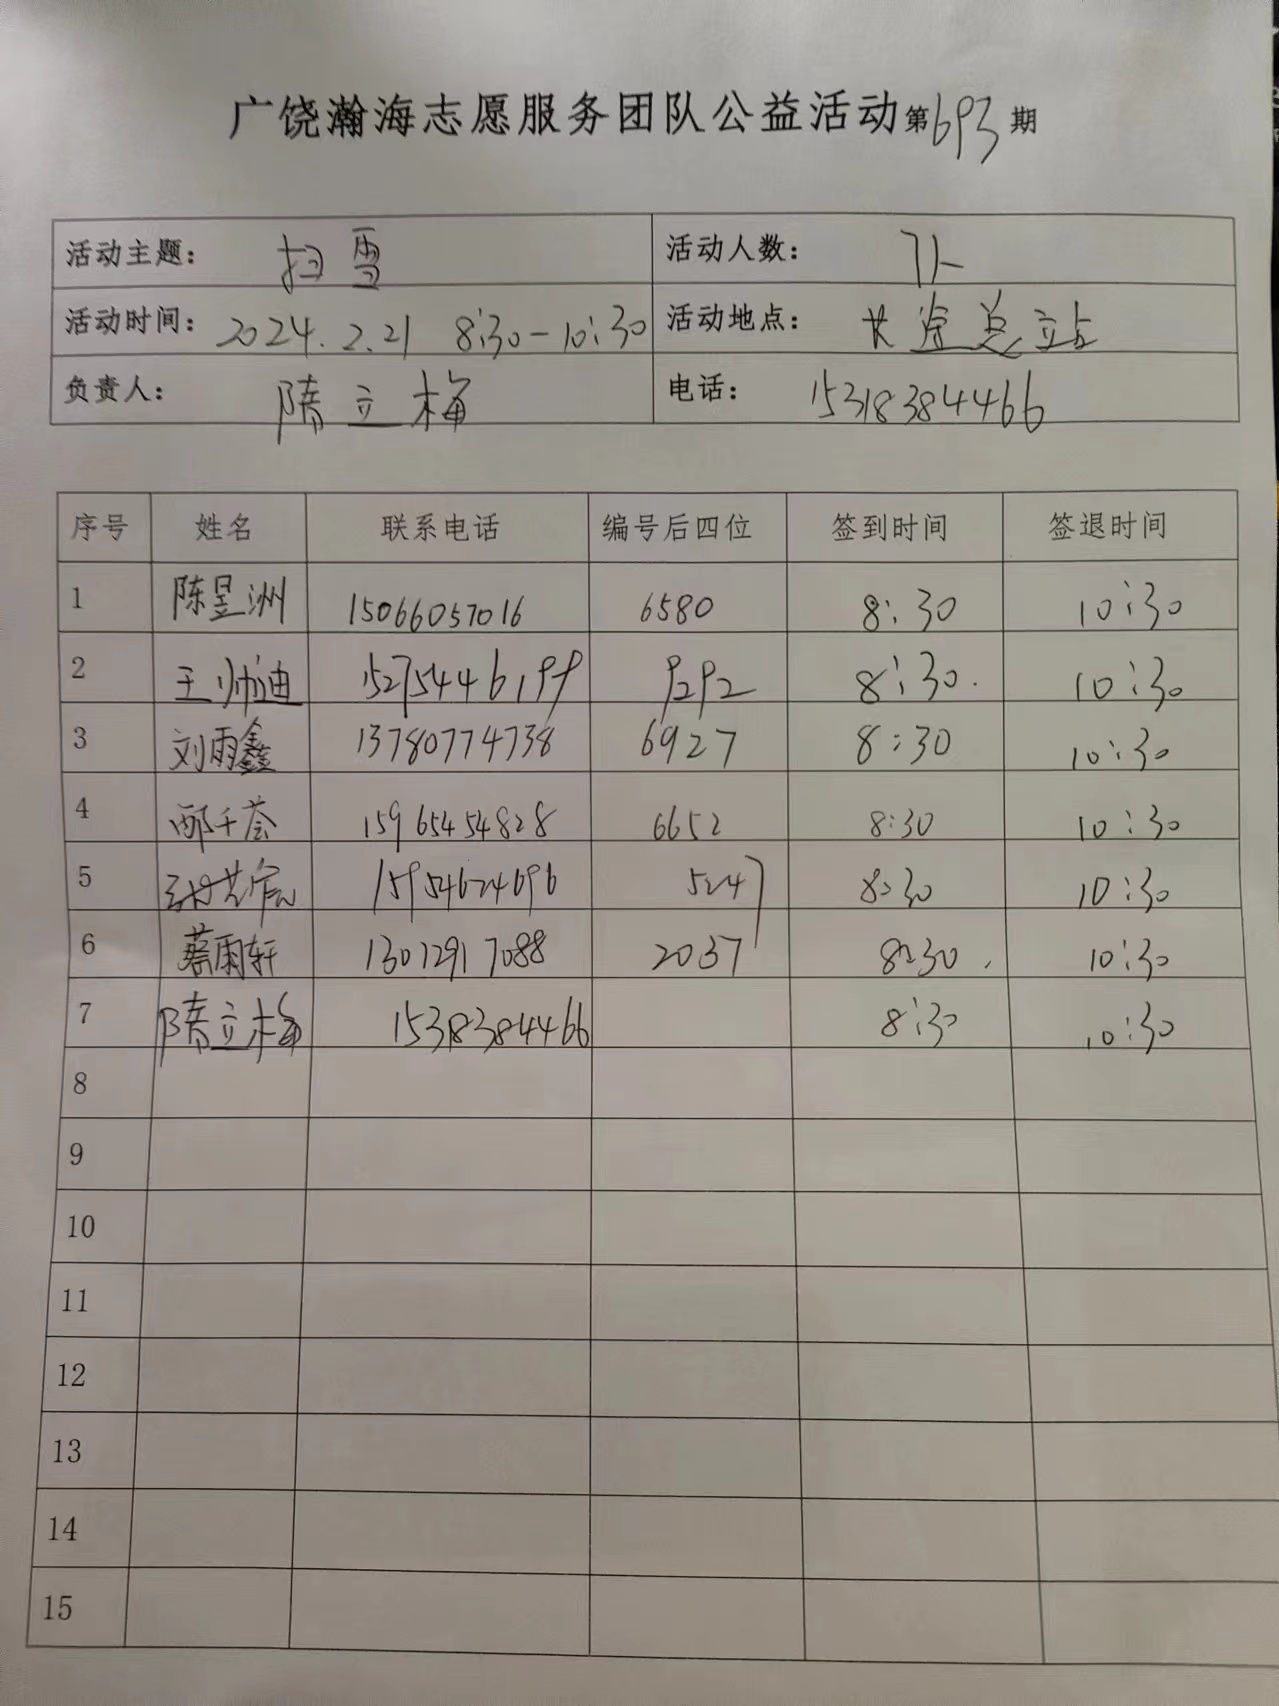 广饶瀚海志愿服务团队公益活动第693期
活动主题： 扫雪 活动人数： 7人
活动时间： 2024.2.21 8:30-10:30 活动地点： 长途总站
负责人： 隋立梅 电话： 15318384466
序号 姓名 联系电话 编号后四位 签到时间 签退时间
1 陈昱洲 15066057016 6580 8:30 10:30
2 王帅迪 15275446199 9292 8:30 10:30
3 刘雨鑫 13780774738 6927 8:30 10:30
4 千荟 15965454828 6652 8:30 10:30
5 15954624696 5247 8:30 10:30
6 蔡雨轩 13012917088 2037 8:30 10:30
7 隋立梅 15318384466 8:30 10:30
8
9
10
11
12
13
14
15